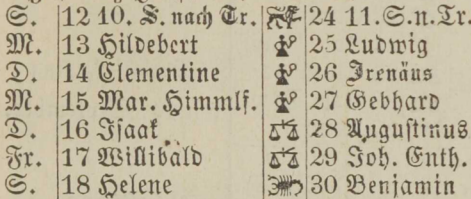 S. 12 10. S. nach Tr. 24 11. S. n. Tr.
M. 13 Hildebert 25 Ludwig
D. 14 Clementine 26 Irenäus
M. 15 Mar. Himmlf. 27 Gebhard
D. 16 Isaak 28 Augustinus
Fr. 17 Willibald 29 Joh. Enth.
S. 18 Helene 30 Benjamin